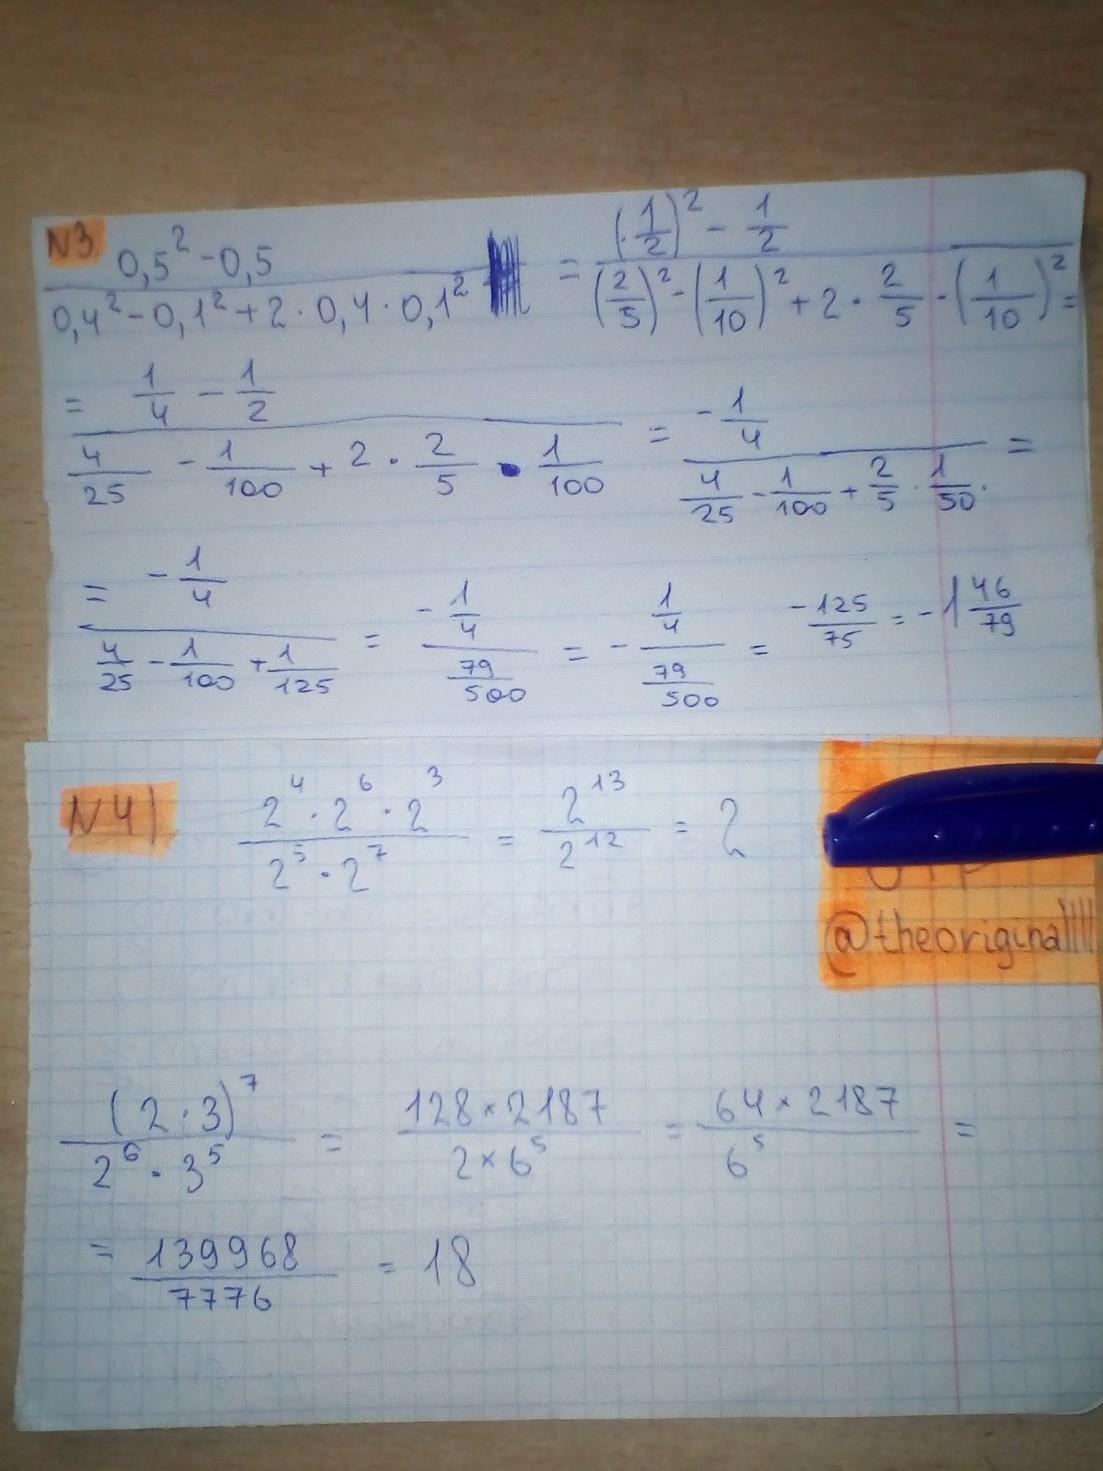 N3
(0,5² - 0,5)/(0,4² - 0,1² + 2 · 0,4 · 0,1²) = ((1/2)² - 1/2)/((2/5)² - (1/10)² + 2 · 2/5 · (1/10)²) =
= (1/4 - 1/2)/(4/25 - 1/100 + 2 · 2/5 · 1/100) = (-1/4)/(4/25 - 1/100 + 2/5 · 1/50) =
= (-1/4)/(4/25 - 1/100 + 1/125) = (-1/4)/(79/500) = -(1/4)/(79/500) = -125/75 = -1 46/79
N4) (2⁴ · 2⁶ · 2³)/(2⁵ · 2⁷) = 2¹³/2¹² = 2
@theoriginallll
(2 · 3)⁷/(2⁶ · 3⁵) = (128 × 2187)/(2 × 6⁵) = (64 × 2187)/6⁵ =
= 139968/7776 = 18